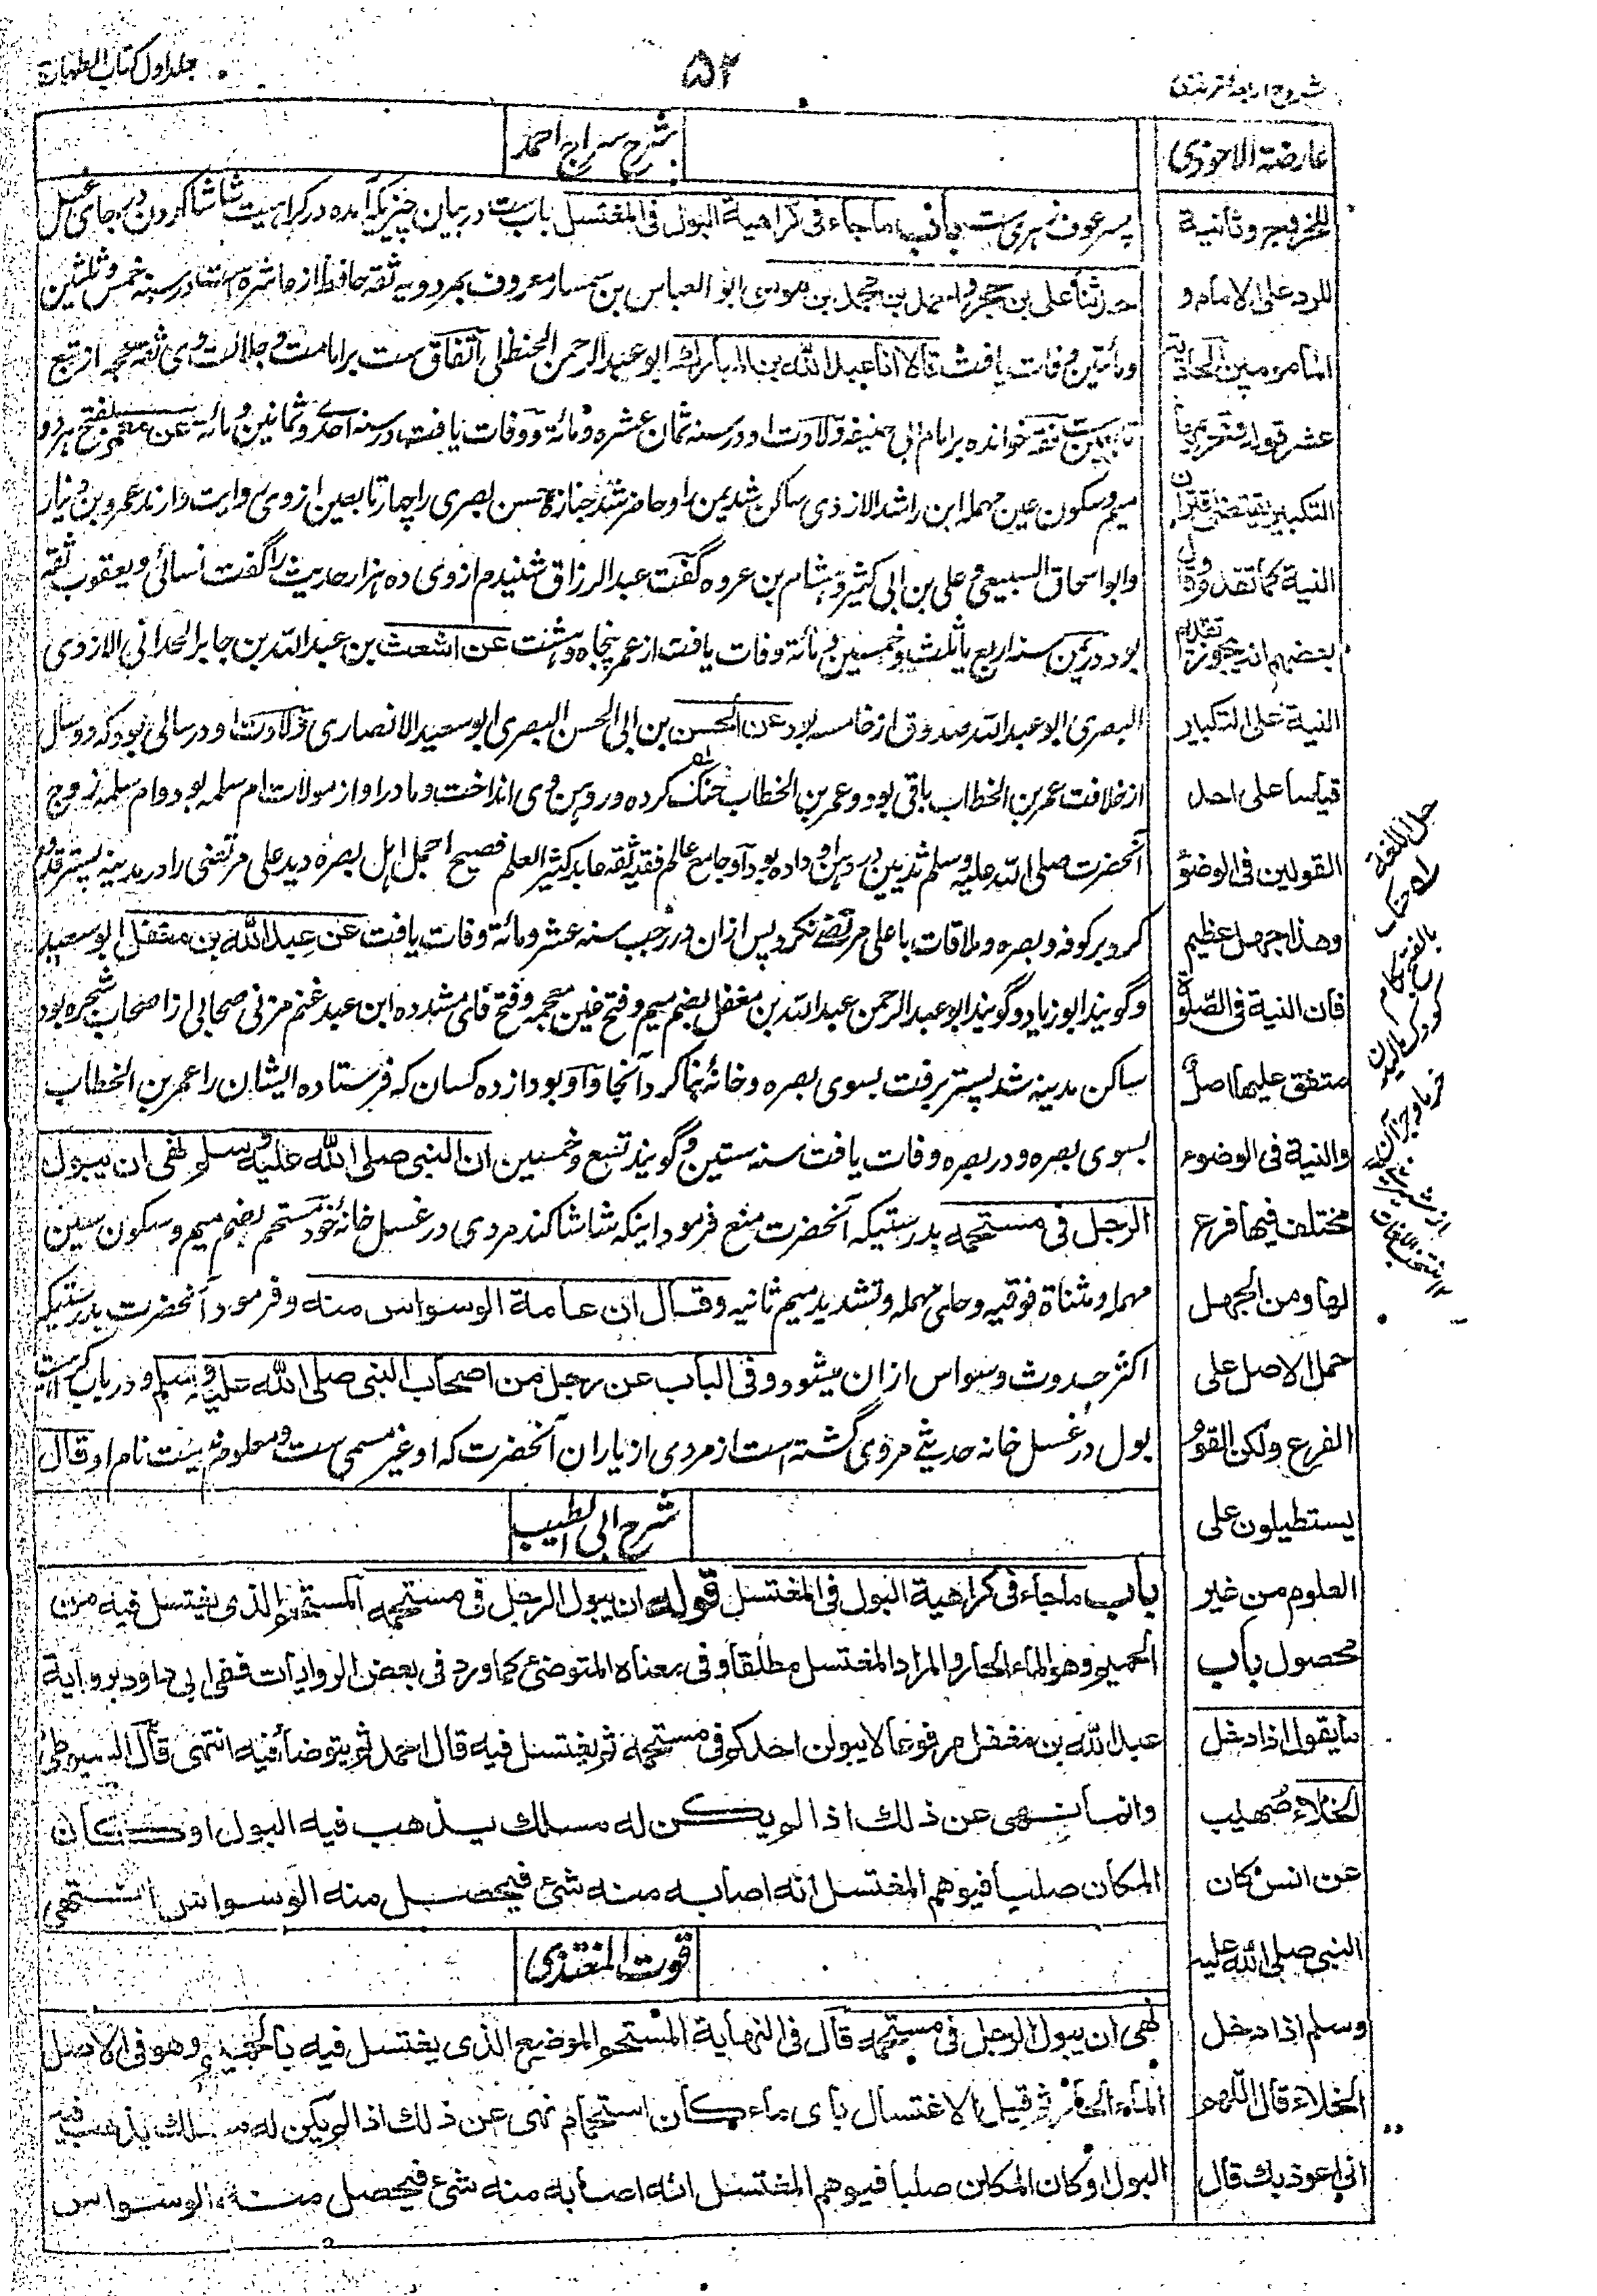 شروح اربعه ترمذی
۵۲
جلد اول کتاب الطهارت
شرح سراج احمد
پسر عوف زهری ست باب ماجاء فی کراهیة البول فی المغتسل باب ست در بیان چیزیکه آمده در کراهیت شاشا کردن در جای غسل
حدثنا علی بن حجر و احمد بن محمد بن موسی ابو العباس بن سمسار معروف بمردویه ثقه حافظ از عاشره است در سنه خمس و ثلثین
و مأتین وفات یافت قالا انا عبد الله بن المبارک ابو عبد الرحمن الحنظلی اتفاق ست بر امامت و جلالت وی ثقه حجه از تبع
تابعین ست فقه خوانده بر امام ابی حنیفه ولادت او در سنه ثمان عشره و مائة و وفات یافت در سنه احدی و ثمانین و مائة عن معمر بفتح هر دو
میم و سکون عین مهمله ابن راشد الازدی ساکن شد یمن را و حاضر شد جنازه حسن بصری را چهار تابعین از وی روایت دارند عمرو بن دینار
و ابو اسحاق السبیعی و علی بن ابی کثیر و هشام بن عروه گفت عبد الرزاق شنیدم از وی ده هزار حدیث را گفت نسائی و یعقوب ثقه
بود در یمن سنه اربع یا ثلث و خمسین و مائة وفات یافت از عمر پنجاه و هشت عن اشعث بن عبد الله بن جابر الحدانی الازدی
البصری ابو عبد الله صدوق از خامسه بود عن الحسن بن ابی الحسن البصری ابو سعید الانصاری ولادت او در سالی بود که دو سال
از خلافت عمر بن الخطاب باقی بود و عمر بن الخطاب حنک کرده و در دهن وی انداخت و مادر او از مولات ام سلمه بود و ام سلمه زوج
آنحضرت صلی الله علیه و سلم ثدیین در دهن او داده بود و او جامع عالم فقیه ثقه عابد کثیر العلم فصیح اجمل اهل بصره دید علی مرتضی را در مدینه پستر قدوم
کرد بر کوفه و بصره و ملاقات با علی مرتضی نکرد پس ازان در رجب سنه عشر و مائة وفات یافت عن عبد الله بن مغفل ابو سعید
و گویند ابو زیاد و گویند ابو عبد الرحمن عبد الله بن مغفل بضم میم و فتح غین معجمه و فتح فای مشدده ابن عبد غنم مزنی صحابی از اصحاب شجره بود
ساکن مدینه شد پستر برفت بسوی بصره و خانه بنا کرد آنجا و او بود از ده کسان که فرستاده ایشان را عمر بن الخطاب
بسوی بصره و در بصره وفات یافت سنه ستین و گویند تسع و خمسین ان النبی صلی الله علیه و سلم نهی ان یبول
الرجل فی مستحمه بدرستیکه آنحضرت منع فرمود اینکه شاشا کند مردی در غسل خانهٔ خود مستحم بضم میم و سکون سین
مهمله و مثناة فوقیه و حای مهمله و تشدید میم ثانیه و قال ان عامة الوسواس منه و فرمود آنحضرت بدرستیکه
اکثر حدوث وسواس ازان میشود و فی الباب عن رجل من اصحاب النبی صلی الله علیه و سلم و در باب کراهیت
بول در غسل خانه حدیثی مروی گشته است از مردی از یاران آنحضرت که او غیر مسمی ست و معلوم نیست نام او قال
شرح ابی الطیب
باب ماجاء فی کراهیة البول فی المغتسل قوله ان یبول الرجل فی مستحمه المستحم الذی یغتسل فیه من
الحمیم وهو الماء الحار والمراد المغتسل مطلقا وفی معناه المتوضئ کما ورد فی بعض الروایات ففی ابی داود بروایة
عبد الله بن مغفل مرفوعا لا یبولن احدکم فی مستحمه ثم یغتسل فیه قال احمد ثم یتوضأ فیه انتهی قال السیوطی
وانما نهی عن ذلک اذا لم یکن له مسلک یذهب فیه البول او کان
المکان صلبا فیوهم المغتسل انه اصابه منه شئ فیحصل منه الوسواس انتهی
قوت المغتذی
نهی ان یبول الرجل فی مستحمه قال فی النهایة المستحم الموضع الذی یغتسل فیه بالحمیم وهو فی الاصل
الماء الحار ثم قیل الاغتسال بای ماء کان استحمام نهی عن ذلک اذا لم یکن له مسلک یذهب فیه
البول او کان المکان صلبا فیوهم المغتسل انه اصابه منه شئ فیحصل منه الوسواس
عارضة الاحوذی
للخروج وثانیة
للرد علی الامام و
المأمومین الحادیة
عشر قوله تحریمها
التکبیر یقتضی اقتران
النیة کما تقدم وقال
بعضهم انه یجوز تقدیم
النیة علی التکبیر
قیاسا علی احد
القولین فی الوضؤ
وهذا جهل عظیم
فان النیة فی الصلوٰة
متفق علیها اصل
والنیة فی الوضوء
مختلف فیها فرع
لها ومن الجهل
حمل الاصل علی
الفرع ولکن القوم
یستطیلون علی
العلوم من غیر
محصول باب
ما یقول اذا دخل
الخلاء صهیب
عن انس کان
النبی صلی الله علیه
وسلم اذا دخل
الخلاء قال اللهم
انی اعوذ بک قال
حل اللغة
بالفتح کام